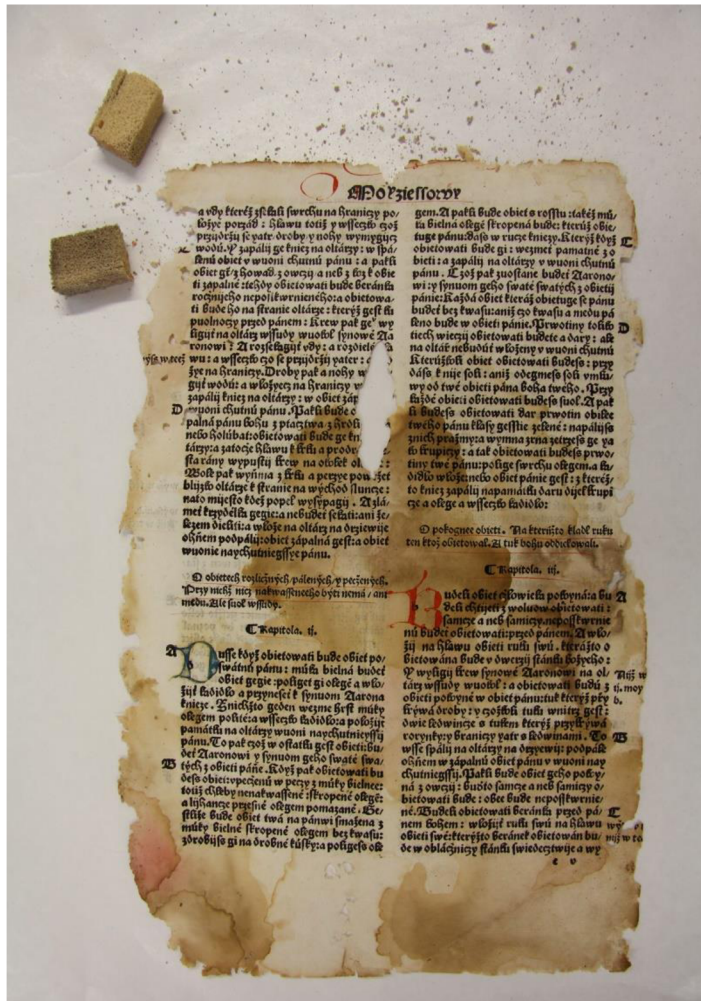 Moyziessowy
a vdy kteréž zsěkali swrchu na hraniczy po/
ložye porzád: hlawu totiž y wsseczko czož
przijdržij se yatr droby y nohy wymygycz
wodú. Y zapálij ge kniez na oltárzy: w
lenú obiet v wuoni chutnú pánu: a pakli
obiet
ti zapalné: tehdy obietowati bude beránka
rocznijeho neposskwrnieného: a obietowa/
ti bude ho na straně oltárze: kteryž gest ku
puolnoczy przed pánem: Krew pak geº wy
ligijt na oltárz wssudy wuokol synowé Aa
ronowi: A rozsekagijt vdy: a rozdiele
wu: a wsseczko czo se przijdržij yater:
žye na hraniczy. Droby pak a nohy w
gijt wodú: a wložyecz na hraniczy
zapálij kniez na oltárzy: w obiet záp
D
wuoni chutnú pánu. Pakli bude o
palná pánu bohu z ptactwa: z hrdli
nebo holúbat: obietowati bude ge kn
tárzy: a zatocže hlawu k krku a prodr
sta rány wypustij krew na okolek ol
Wole pak wyňma z krku a perzye
blijzko oltárze k straně na wýchod slunce:
na to mijesto kdež popel wysypagij. A zlá/
met krzydélka gegie: a nebudet sekati: ani že/
lezem dieliti: a wlože na oltárz na drziewije
ohňem podpálij: obiet zápalná gest: a obiet
wuonie naychutniegssye pánu.
O obietech rozlicžných pálených, y peczených.
Przy nichž nicz nakwasseného býti nemá, ani
medu. Ale suol wssudy.
¶ Kapitola. ij.
A
Dusse když obietowati bude obiet po/
swátnú pánu: múka bielná budet
obiet gegie: poliget gi olegé a wlo/
žijt kadidlo a przyneset k synuom Aarona
knieze. Z nichžto geden wezme hrst múky
olegem polité: a wsseczko kadidlo: a položijt
památku na oltárzy wuoni naychutnieyssij
pánu. To pak czož w ostatku gest obieti: bu/
det Aaronowi y synuom geho swaté swa/
B
tých z obieti pánie. Když pak obietowati bu
deš obiet: vpecženú w peczy z múky bielnee:
totiž chleby nenakwassené: skropené olegé:
a lijhancze przesné olegem pomazané. Ge/
stliže bude obiet twá na pánwi smažená z
múky bielné skropené olegem bez kwasu:
zdrobijš gi na drobné kúsky: a poligeš olc
gem. A pakli bude obiet s rosstu: takéž mú/
ka bielná olegé skropená bude: kterúž obie/
tuge pánu: dáš w rucze kniezy. Kterýž když
C
obietowati bude gi: wezmet památné z o
bieti: a zapálij na oltárzy v wuoni chutnú
pánu. Czož pak zuostane budet Aarono/
wi: y synuom geho swaté swatých z obietij
pánie: Každá obiet kteráž obietuge se pánu
budet bez kwasu: aniž czo kwasu a medu pá
leno bude w obieti pánie. Prwotiny toliko
D
tiech wieczij obietowati budete a dary: ale
na oltárz nebudú wloženy v wuoni chutnú
Kterúžkoli obiet obietowati budeš: przy
dáš k nije soli: aniž odegmeš soli vmlu/
wy od twé obieti pána boha twého. Przy
každé obieti obietowati budeš suol. A pak
li budeš obietowati dar prwotin obilee
twého pánu klasy gesstie zelené: napálijš
z nich pražmy: a wymna zrna zetrzeš ge ya
ko krupiczy: a tak obietowati budeš prwo/
tiny twé pánu: polige swrchu olegem: a ka/
didlo wlože: nebo obiet pánie gest: z kteréž/
to kniez zapálij na památku daru dijel krupi
cze a olege a wsseczko kadidlo:
O pokognee obieti. Na kterúžto kladl ruku
ten ktož obietowal. A tuk bohu oddielowali.
¶ Kapitola. iij.
Budeli obiet cžlowieka pokoyná: a bu
A
deli chtijeti z woluow obietowati:
samcze a neb samiczy neposskwrnie
nú budet obietowati: przed pánem. A wlo/
žij na hlawu obieti ruku swú. kterážto o
bietowána bude v dwerzij stánku božyeho:
Y wyligij krew synowé Aaronowi na ol/
tárz wssudy wuokol: a obietowati budú z
obieti pokoyné w obiet pánu: tuk kterýž přy
krýwá droby: y czožkoli tuku wnitrz gest:
dwie ledwince s tukem kterýž przykrýwá
rozynky: y braniczy yatr s ledwinami. To
B
wsse spálij na oltárzy na drzewij: podpále
ohňem w zápalnú obiet pánu v wuoni nay
chutniegssij. Pakli bude obiet geho pokoy/
ná z owczij: budto samcze a neb samiczy o/
bietowati bude: obee bude neposskwrnie/
né. Budeli obietowati beránka przed pá/
C
nem bohem: wložijt ruku swú na hlawu
obieti swé: kterýžto beránek obietowán bu/
de w obláczniczy stánku swiedecztwije a wy
e v